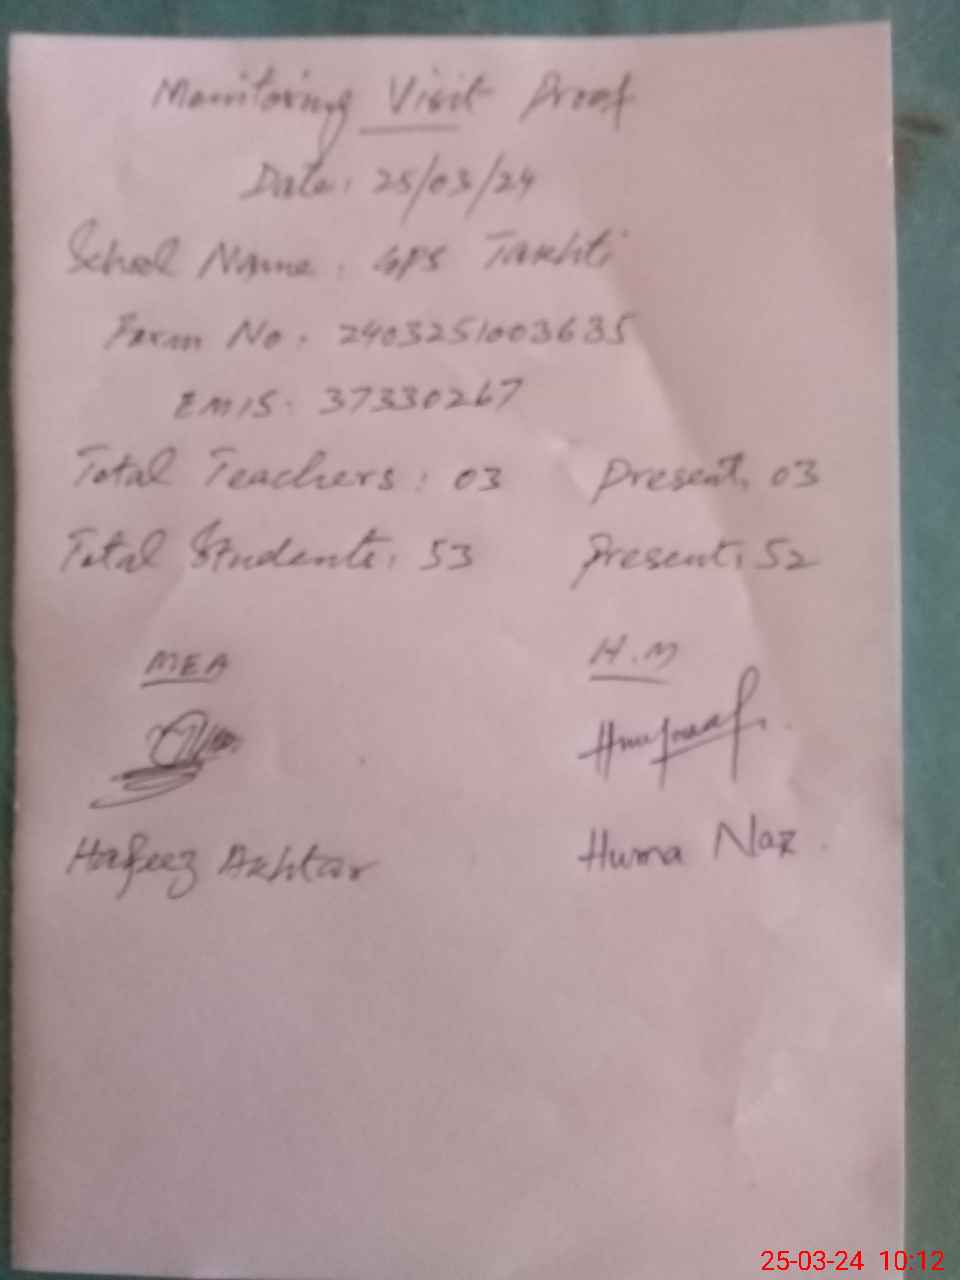 Monitoring Visit Proof
Date: 25/03/24
School Name: GPS Takhti
Form No. 2403251003635
EMIS. 37330267
Total Teachers: 03 Present, 03
Total Students: 53 Present: 52
MEA H.M
Hafeez Akhtar Huma Naz.
25-03-24 10:12